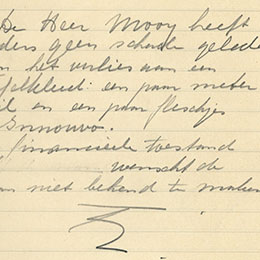 De Heer Mooy heeft
ders geen schade gelede
n het verlies aan een
felkleid: een paar meter
il en een paar fleschjes
financieele toestand
wenscht de
niet bekend te maken